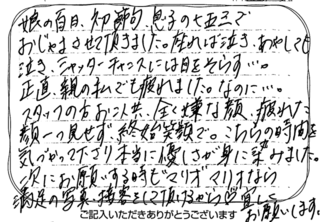 娘の百日、初節句、息子の七五三で
おじゃまさせて頂きました。座れば泣き、あやしても
泣き、シャッターチャンスには目をそらす…。
正直、親の私でも疲れました。なのに…。
スタッフの方お二人共、全く嫌な顔、疲れた
顔一つ見せず、終始笑顔で。こちらの時間を
気づかって下さり本当に優しさが身に染みました。
次にお願いする時もマリオマリオなら
満足の写真・接客をして頂けるから宜しく
お願いします。
ご記入いただきありがとうございます